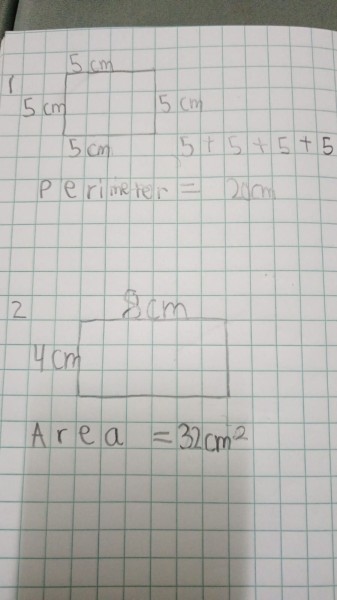 1
5 cm
5 cm 5 cm
5 cm 5 + 5 + 5 + 5
Perimeter = 20cm
2
8cm
4cm
Area = 32cm²